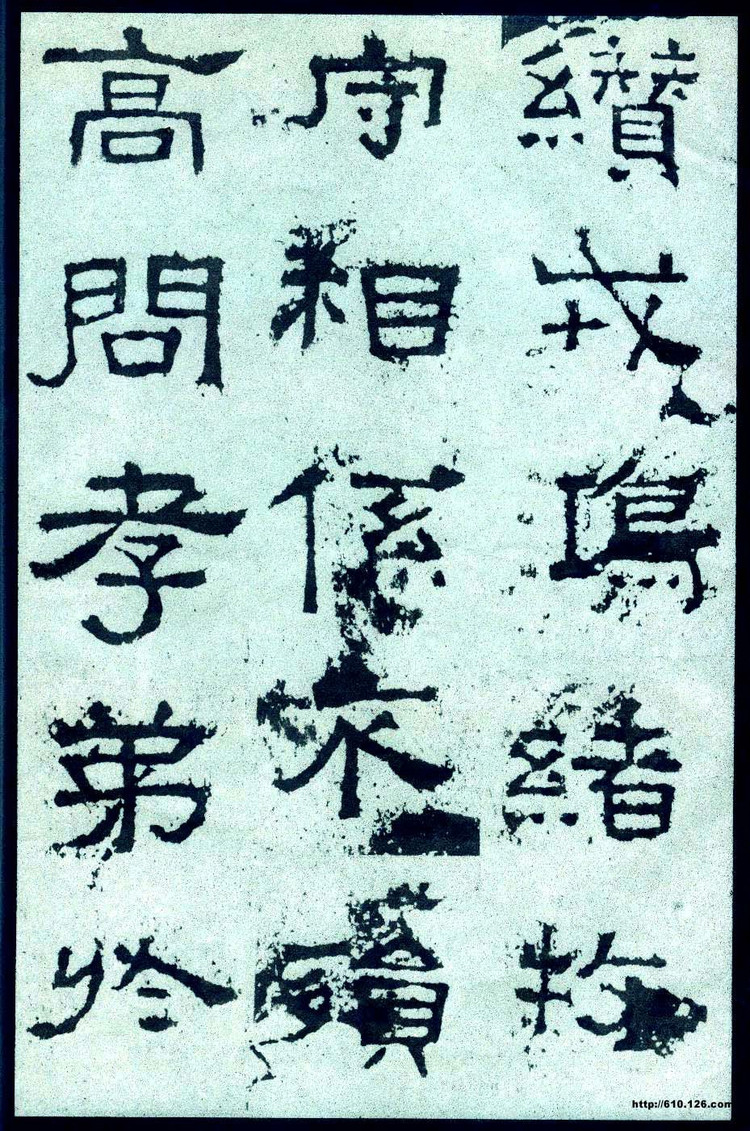 纘戎鴻緒牧
守相係不殞
高問孝弟於
http://610.126.com